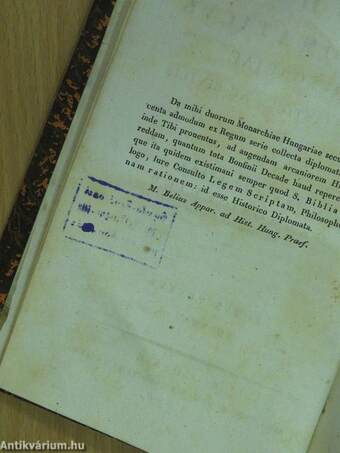 Da mihi duorum Monarchiae Hungariae
centa admodum ex Regum serie collecta
inde Tibi promtus, ad augendam arcaniorem
reddam, quantum tota Bonfinii Decade haud
que ita quidem existimani semper quod S. Biblia
logo, Iure Consulto Legem Scriptam,
nam rationem: id esse Historico Diplomata.
M. Belius Appar. ad Hist. Hung. Praef.
Antikvárium.hu